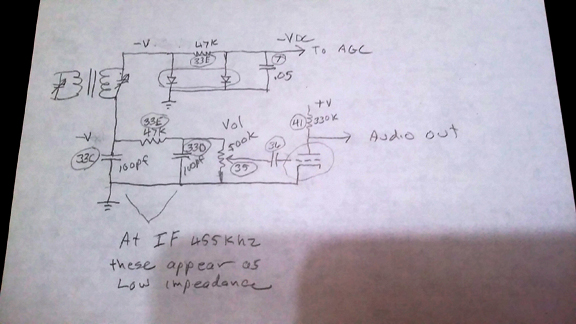 -V
47K
33E
-VDC
To AGC
7
.05
+V
41 330K
-V
33E
47K
Vol
500K
33C
100pf
33D
100pf
35
36
Audio out
At IF 455Khz
these appear as
Low impedance